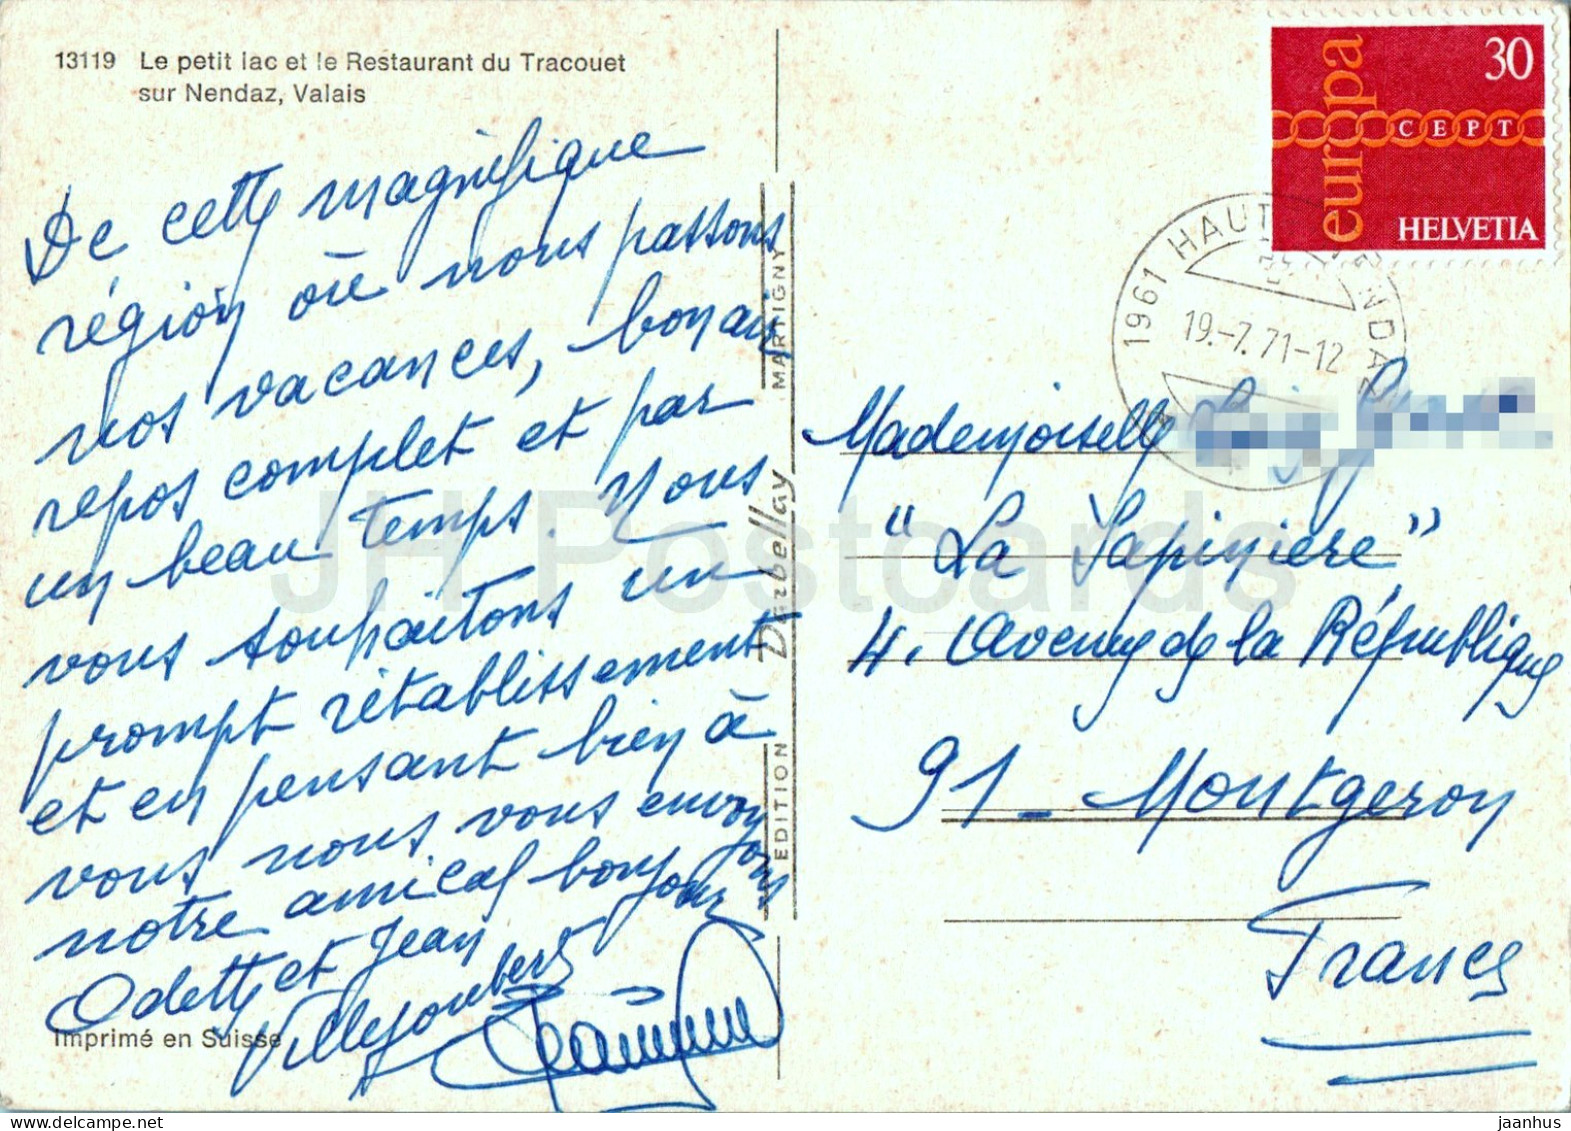 13119 Le petit lac et le Restaurant du Tracouet
sur Nendaz, Valais
De cette magnifique
région où nous passons
nos vacances, bon air,
repos complet et par
un beau temps. Nous
vous souhaitons un
prompt rétablissement
et en pensant bien à
vous nous vous envoyons
notre amical bonjour
Odette et Jean
Villejoubert
Imprimé en Suisse
EDITION Darbellay MARTIGNY
europa
30
CEPT
HELVETIA
1961 HAUTE-NENDAZ
19.-7.71-12
Mademoiselle
"La Sapinière"
4. Avenue de la République
91 - Montgeron
France
JH Postcards
delcampe.net
jaanhus